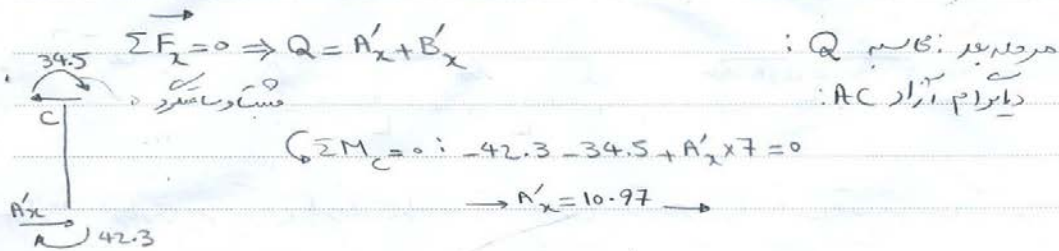 مرحله بعد : محاسبه Q :
ΣFx = 0 ⇒ Q = A'x + B'x
دیاگرام آزاد AC:
34.5
C
ΣMc = 0 : -42.3 - 34.5 + A'x × 7 = 0
→ A'x = 10.97 →
A'x
A 42.3